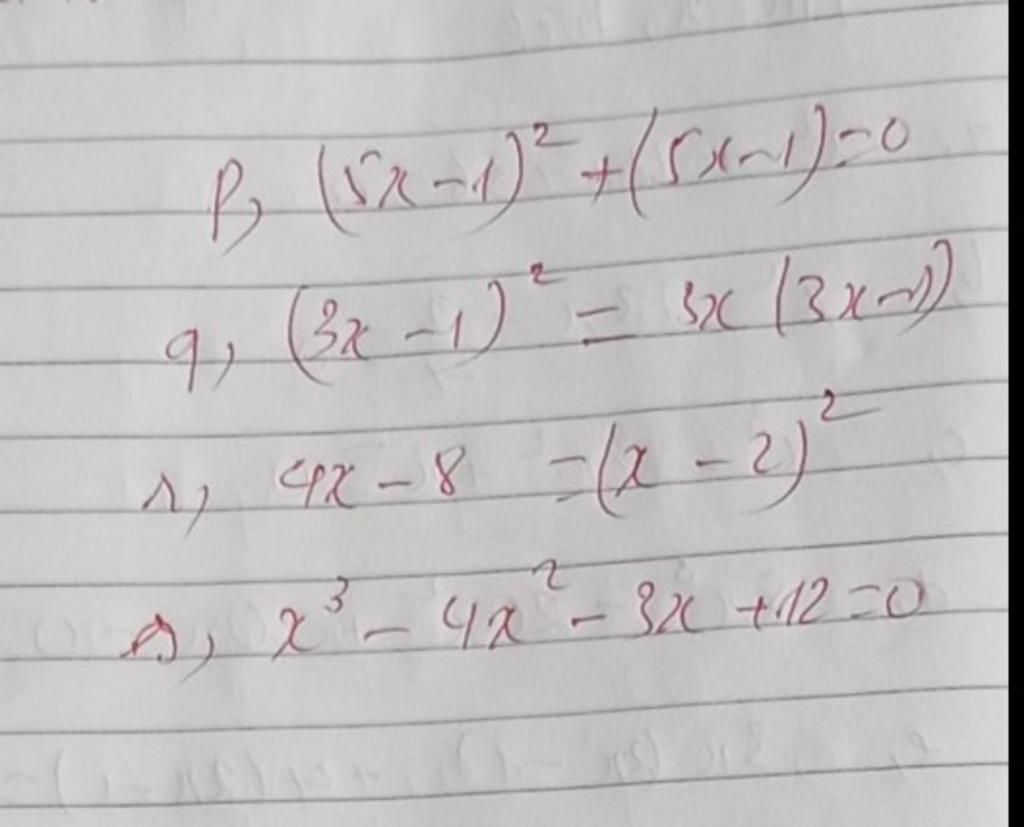 p, (5x-1)² + (5x-1)=0
q, (3x-1)² = 3x (3x-1)
r, 4x-8 =(x-2)²
s, x³ - 4x² - 3x +12=0